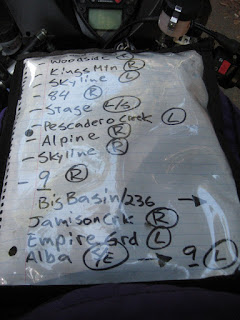 - Woodside (R)
- Kings Mtn (R)
- Skyline (L)
- 84 (R)
- Stage (L/S)
- Pescadero Creek (L)
- Alpine (R)
- Skyline (R)
- 9 (R)
Big Basin/236 →
Jamison Crk (R)
Empire Grd (L)
Alba → 9 (L)